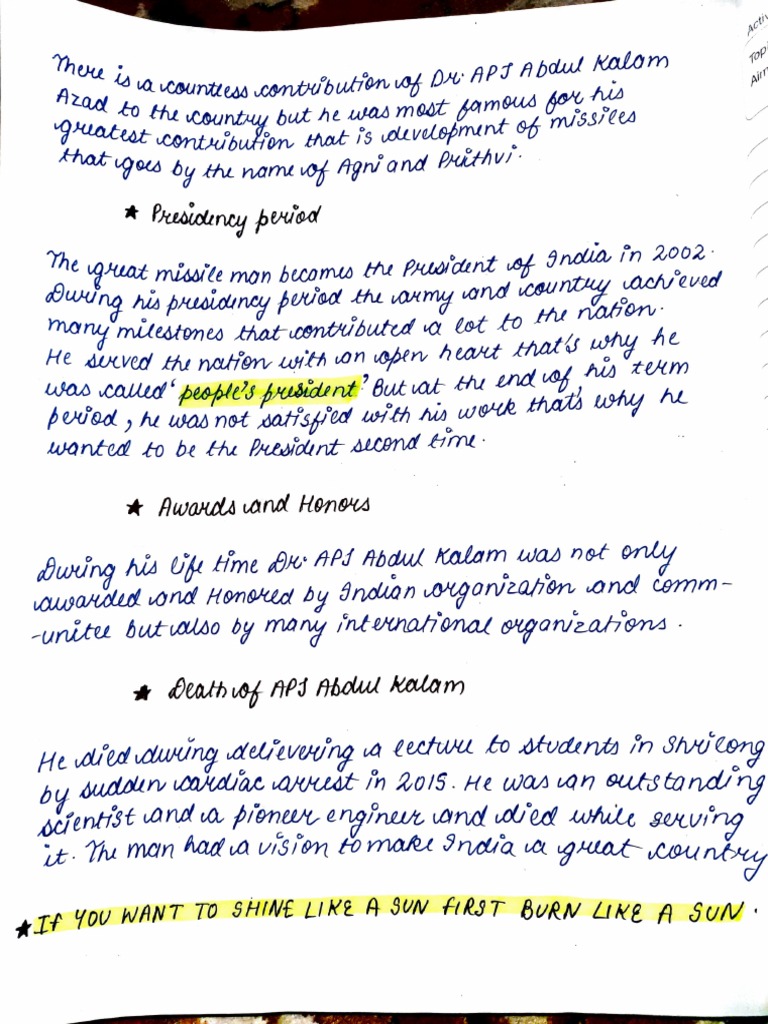 There is a countless contribution of Dr. APJ Abdul Kalam
Azad to the country but he was most famous for his
greatest contribution that is development of missiles
that goes by the name of Agni and Prithvi.
★ Presidency period
The great missile man becomes the President of India in 2002.
During his presidency period the army and country achieved
many milestones that contributed a lot to the nation.
He served the nation with an open heart that's why he
was called 'people's president' But at the end of his term
period, he was not satisfied with his work that's why he
wanted to be the President second time.
★ Awards and Honors
During his life time Dr. APJ Abdul Kalam was not only
awarded and Honored by Indian organization and comm-
-unitee but also by many international organizations.
★ Death of APJ Abdul Kalam
He died during delievering a lecture to students in Shrilong
by sudden cardiac arrest in 2015. He was an outstanding
scientist and a pioneer engineer and died while serving
it. The man had a vision to make India a great country
★ If YOU WANT TO SHINE LIKE A SUN FIRST BURN LIKE A SUN.